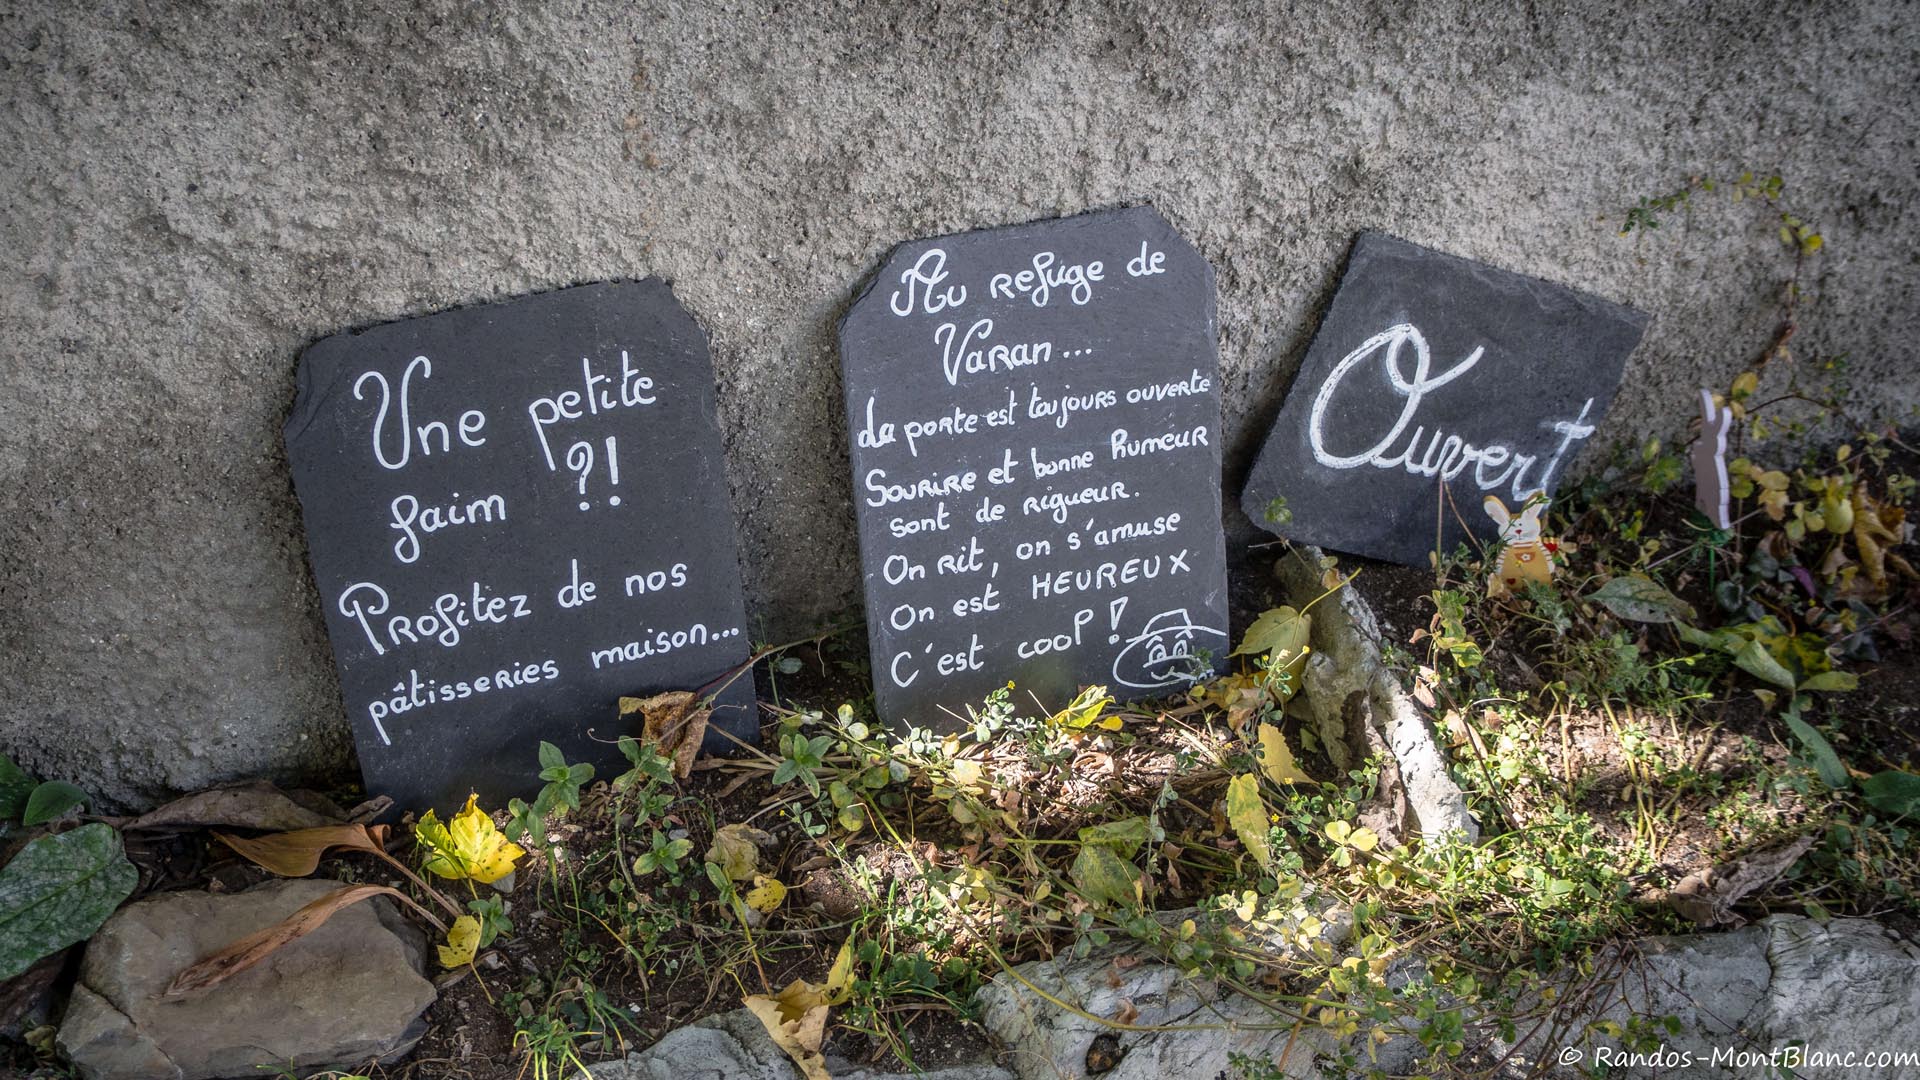 Une petite
faim ?!
Profitez de nos
pâtisseries maison...
Au refuge de
Varan...
La porte est toujours ouverte
Sourire et bonne humeur
sont de rigueur.
On rit, on s'amuse
On est HEUREUX
C'est cool !
Ouvert
© Randos-MontBlanc.com